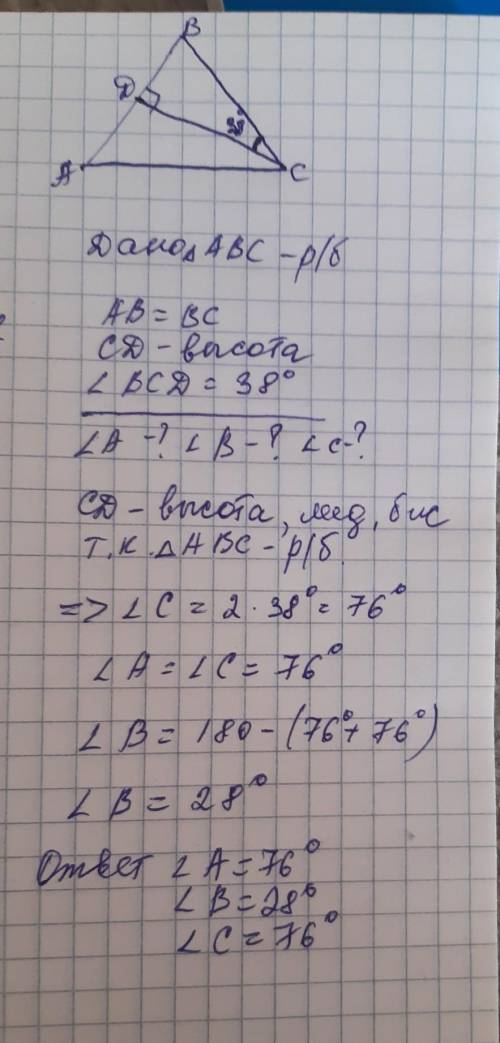 B
D
38°
A
C
Дано △ ABC - р/б
AB = BC
CD - высота
∠ BCD = 38°
∠A -? ∠B -? ∠C-?
CD - высота, мед, бис
т.к. △ ABC - р/б.
=> ∠C = 2 · 38° = 76°
∠A = ∠C = 76°
∠B = 180 - (76° + 76°)
∠B = 28°
Ответ ∠A = 76°
∠B = 28°
∠C = 76°